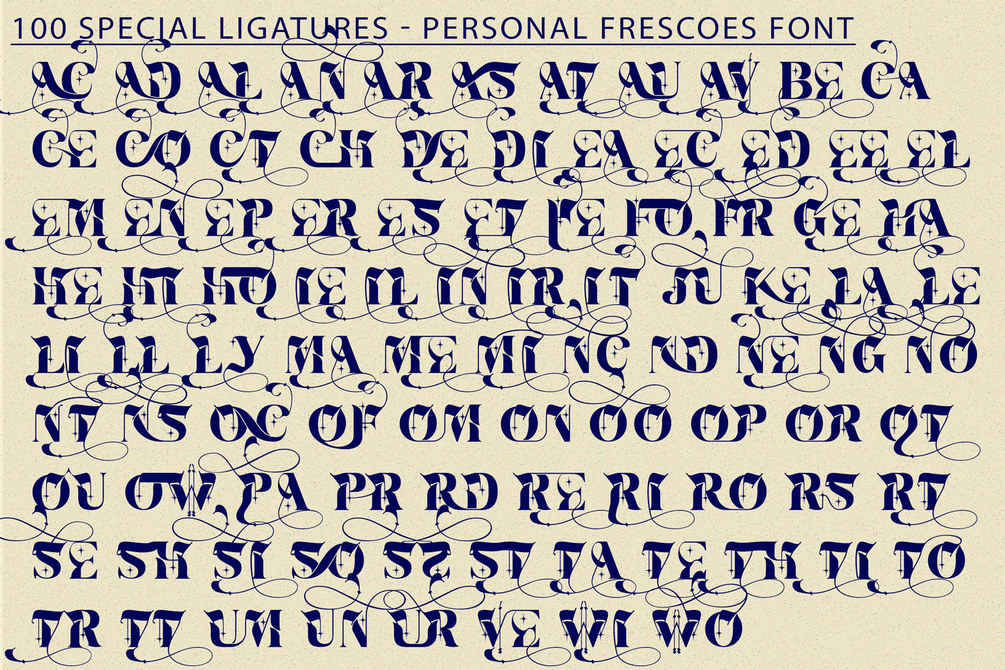 100 SPECIAL LIGATURES - PERSONAL FRESCOES FONT
AC AD AL AN AR AS AT AU AV BE CA
CE CO CT CH DE DI EA EC ED EE EL
EM EN EP ER ES ET FE FO FR GE HA
HE HI HO IE IL IN IR IT JU KE LA LE
LI LL LY MA ME MI NC ND NE NG NO
NT NS OC OF OM ON OO OP OR OT
OU OW PA PR RD RE RI RO RS RT
SE SH SI SO SS ST TA TE TH TI TO
TR TT UM UN UR VE WI WO